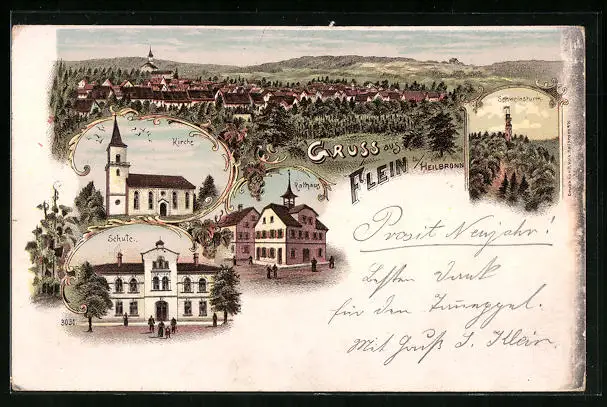 Schweinsturm.
Kirche
Gruss aus
Flein b/Heilbronn
Rathaus
Schule.
Prosit Neujahr!
Besten Dank
für den
Mit Gruß
3031